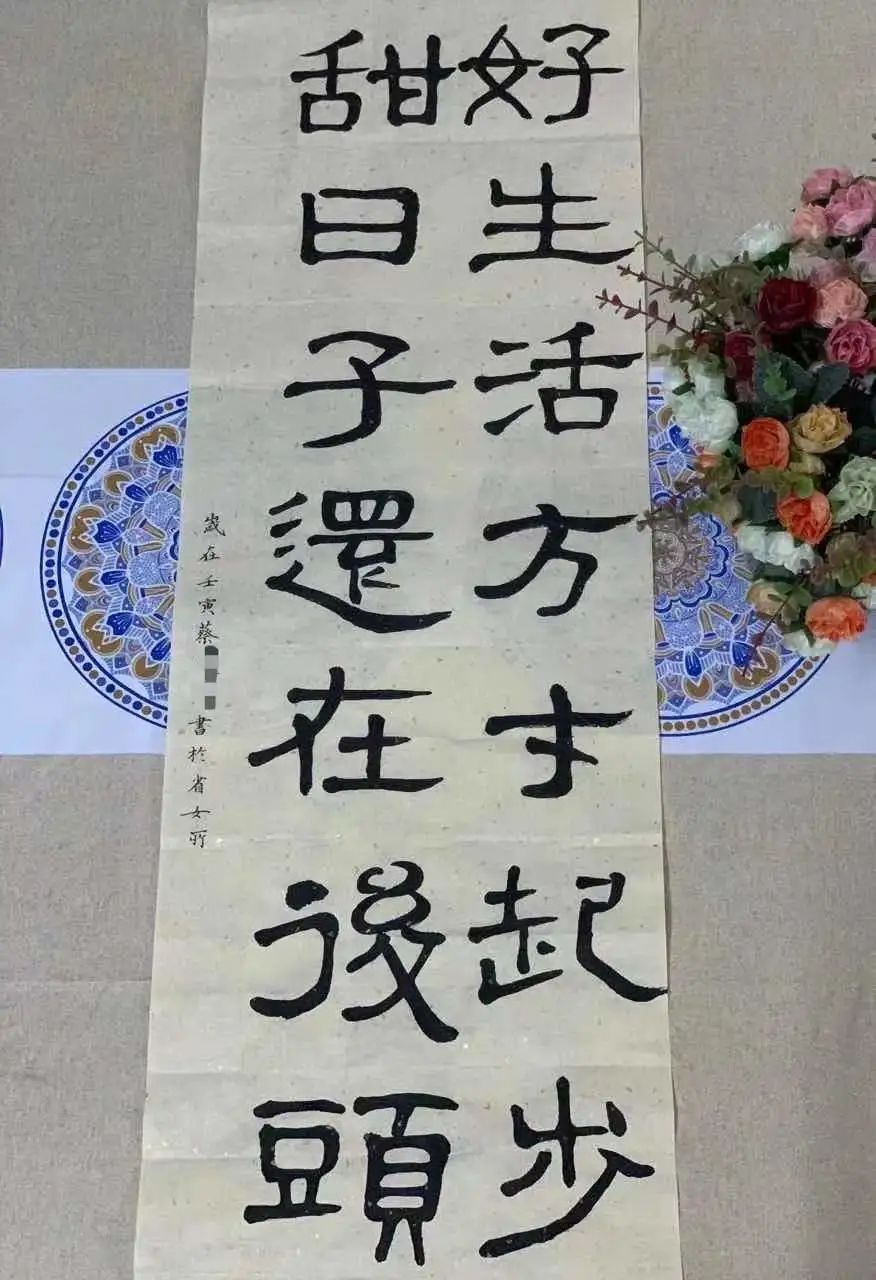 好生活方才起步
甜日子還在後頭
歲在壬寅蔡
書於省女所